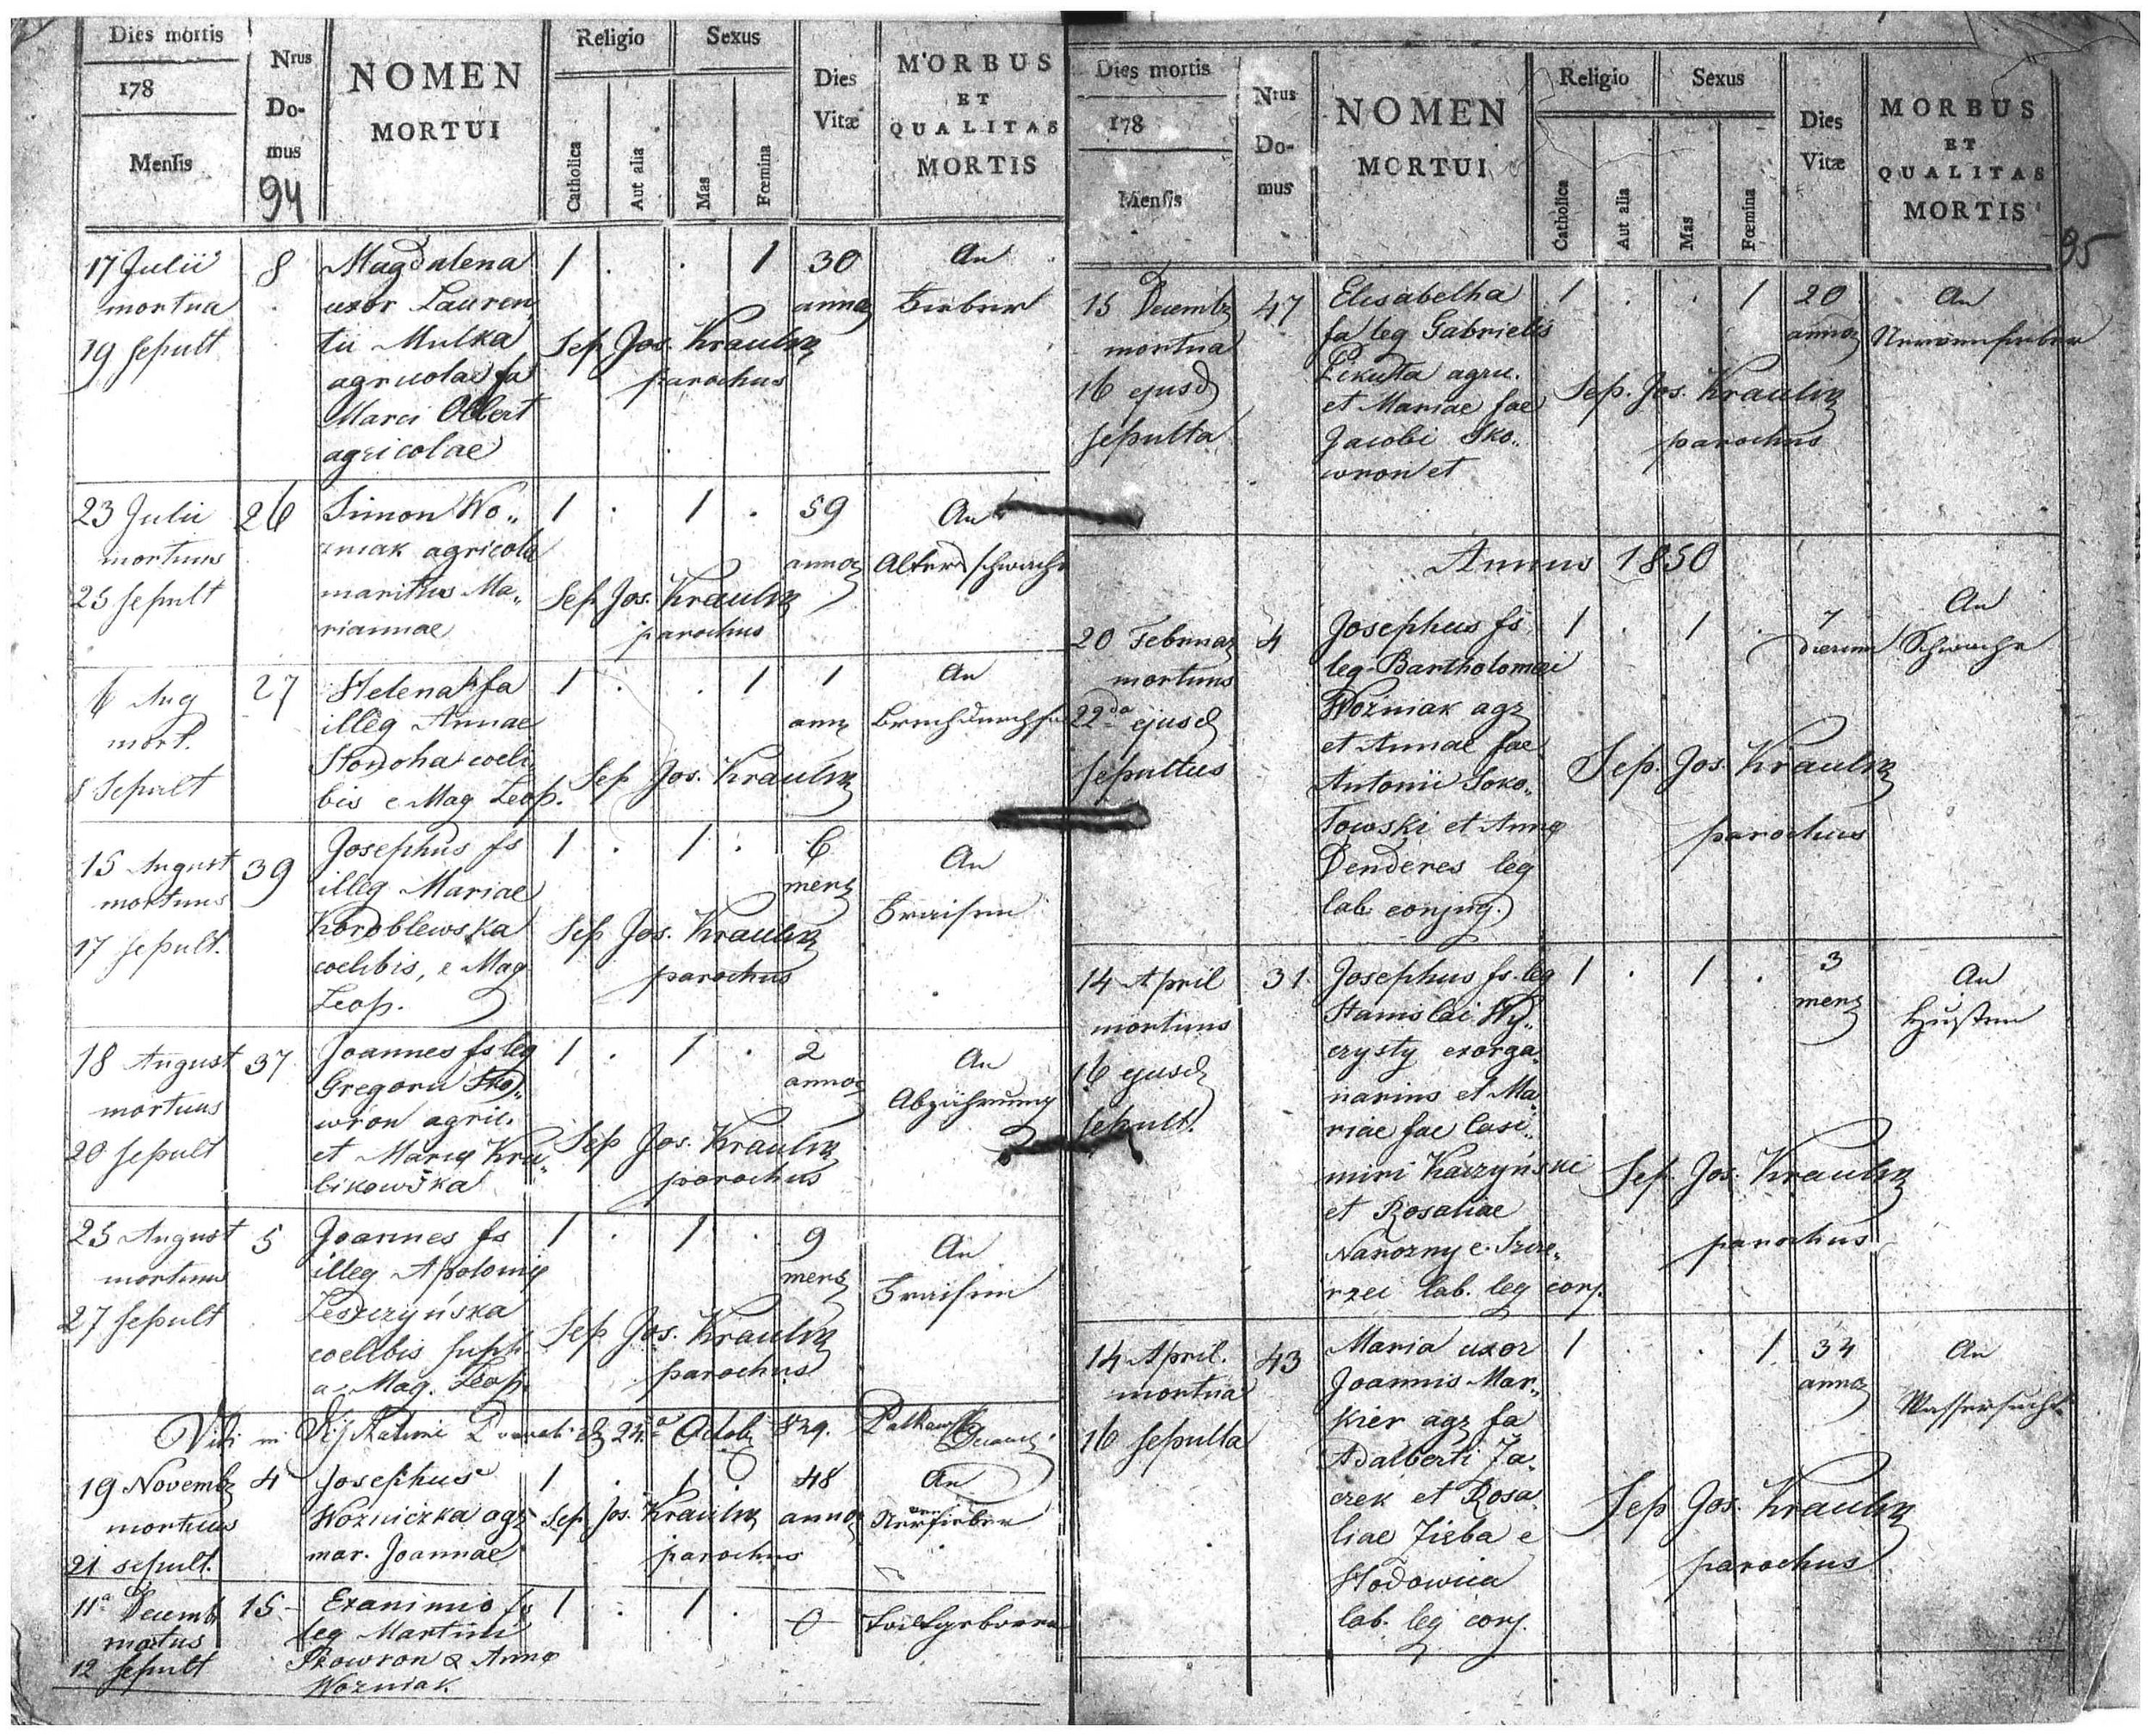 Dies mortis
178
Mensis
Nrus
Do-
mus
94
NOMEN
MORTUI
Religio
Catholica
Aut alia
Sexus
Mas
Fœmina
Dies
Vitæ
MORBUS
ET
QUALITAS
MORTIS
17 Julii 8 Magdalena 1 . . 1 30 An
mortua uxor Lauren„ annoz Fieber
19 sepult tii Mulka Sep Jos. Kraulik
agricolae fa parochus
Marci Olbert
agricolae
23 Julii 26 Simon Wo„ 1 . 1 . 59 An
mortuus zniak agricola annoz Altersschwäche
25 sepult maritus Ma„ Sep Jos. Kraulik
riannae parochus
6 Aug 27 Helena fa 1 . . 1 1 An
mort. illeg Annae anni Brechdurchfa
8 Sepult coeli„ Sep Jos. Kraulik
bis e Mag Leop.
15 August 39 Josephus fs 1 . 1 . 6 An
mortuus illeg Mariae mens Fraisen
17 sepult. Koroblewska Sep Jos. Kraulik
coelibis, e Mag parochus
Leop.
18 August 37 Joannes fs leg 1 . 1 . 2 An
mortuus Gregorii Sko„ annoz Abzährung
20 sepult wron agric. Sep Jos. Kraulik
et Mariae Kru„ parochus
bikowska
25 August 5 Joannes fs 1 . 1 . 9 An
mortuus illeg Apoloniae mens Fraisen
27 sepult Leszczyńska Sep Jos. Kraulik
coelibis supp. parochus
a Mag. Leop.
Vidi 24ta Octob 849.
19 Novemb 4 Josephus 1 . 1 48 An
mortuus Wozniczka agr Sep Jos. Kraulik annoz Nervenfieber
21 sepult. mar. Joannae parochus
11a Decemb 15 Exanimis fs 1 . 1 . 0 Todtgeboren
mortus leg Martini
12 sepult Skowron & Annae
Wozniak
Dies mortis
178
Mensis
Nrus
Do-
mus
NOMEN
MORTUI
Religio
Catholica
Aut alia
Sexus
Mas
Fœmina
Dies
Vitæ
MORBUS
ET
QUALITAS
MORTIS
95
15 Decemb 47 Elisabetha 1 . . 1 20 An
mortua fa leg Gabrielis annoz Nervenfieber
16 ejusd Pikulta agric. Sep. Jos. Kraulik
sepulta et Mariae fae parochus
Jacobi Sko„
wron et
Annus 1850
20 Februar 4 Josephus fs 1 . 1 . 7 An
mortuus leg Bartholomaei dierum Schwäche
22da ejusd Wozniak agr
sepultus et Annae fae Sep. Jos. Kraulik
Antonii Soko„ parochus
łowski et Annae
Denderes leg
lab conjug.
14 April 31. Josephus fs leg 1 . 1 . 3 An
mortuus Stanislai Wy„ mens Husten
16 ejusd czysty exorga„
sepult. narius et Ma„
riae fae Casi„
miri Kaczyński Sep. Jos. Kraulik
et Rosaliae parochus
Narozny e Szcze„
rzec lab. leg conj.
14 April. 43 Maria uxor 1 . . 1 34 An
mortua Joannis Mar„ annoz Wassersucht
16 sepulta kier agr fa
Adalberti Ja„
czek et Rosa„ Sep Jos. Kraulik
liae Zięba e parochus
Hodowica
lab. leg conj.